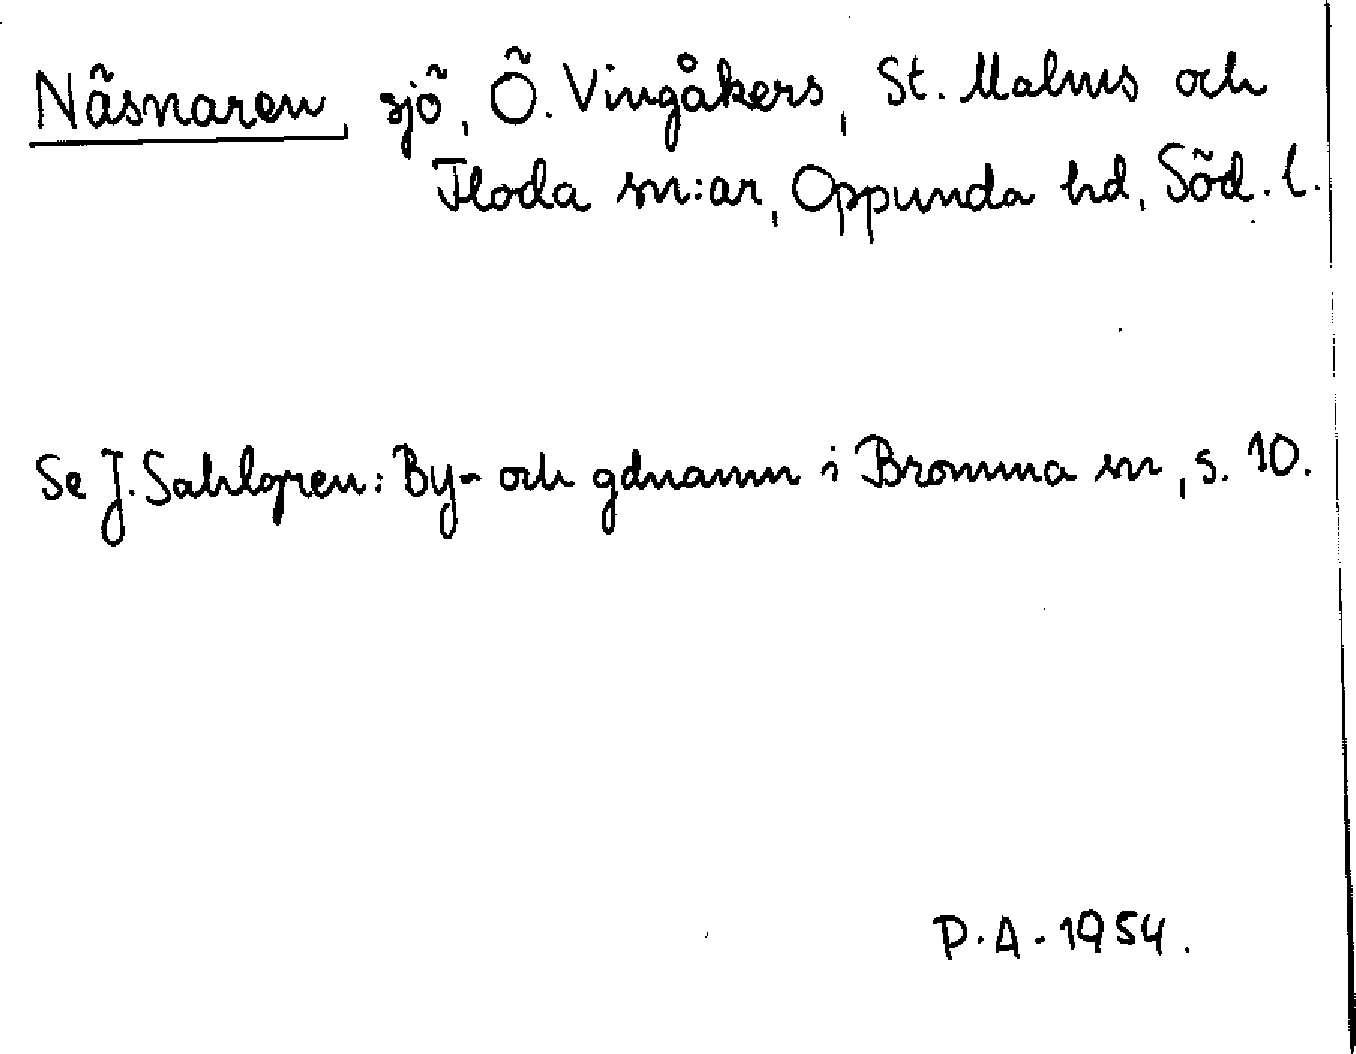 Näsnaren, sjö, Ö. Vingåkers, St. Malms och
Floda sn:ar, Oppunda hd, Söd. l.
Se J. Sahlgren: By- och gdnamn i Bromma sn, s. 10.
P.A. 1954.